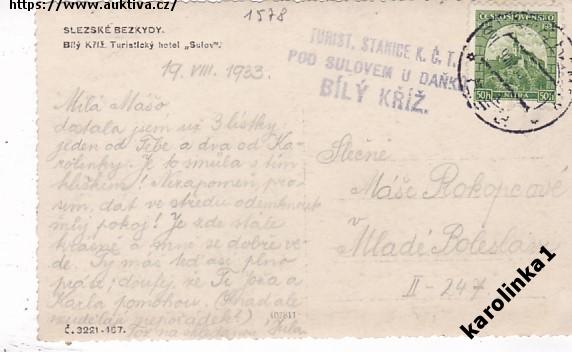 https://www.auktiva.cz/
1578
SLEZSKÉ BEZKYDY.
Bílý Kříž. Turistický hotel „Sulov".
TURIST. STANICE K. Č. T.
POD SULOVEM U DAŇKŮ
BÍLÝ KŘÍŽ.
ČESKOSLOVENSKO
50h NITRA 50h
19. VIII. 1933.
Milá Mášo
dostala jsem už 3 lístky
jeden od Tebe a dva od Ka-
rolenky. Je to smůla s tím
klíčkem! Nezapomeň, pro-
sím, dát ve středu odemknout
můj pokoj! Je zde stále
krásně a mně se dobře ve-
de. Ty máš teď asi plno
práce, doufej, že Ti a
Karla pomohou. (Snad ale
neudělat nepořádek!)
Slečně
Máše Prokopcové
v
Mladé Boleslavi
II - 247
407811
Č. 3221-167.
karolinka1